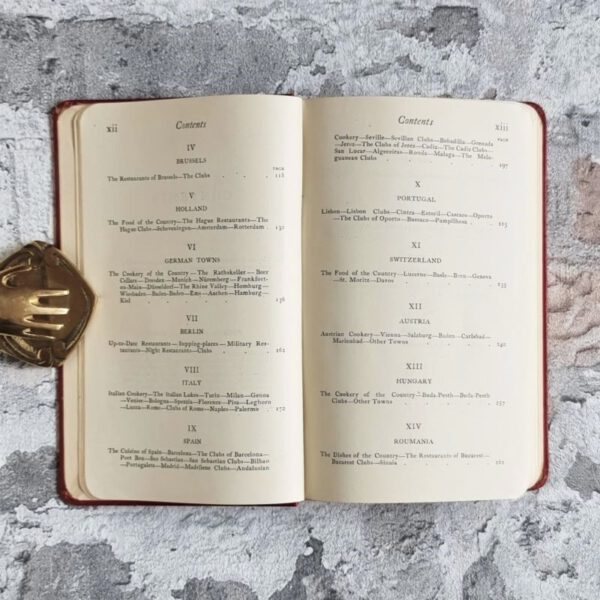 xii
Contents
IV
BRUSSELS
PAGE
The Restaurants of Brussels—The Clubs . . 118
V
HOLLAND
The Food of the Country—The Hague Restaurants—The
Hague Clubs—Scheveningen—Amsterdam—Rotterdam . 131
VI
GERMAN TOWNS
The Cookery of the Country—The Rathskeller—Beer
Cellars—Dresden—Munich—Nüremberg—Frankfort-
on-Main—Düsseldorf—The Rhine Valley—Homburg—
Wiesbaden—Baden-Baden—Ems—Aachen—Hamburg—
Kiel . . . . . . 136
VII
BERLIN
Up-to-Date Restaurants—Supping-places—Military Res-
taurants—Night Restaurants—Clubs . . 162
VIII
ITALY
Italian Cookery—The Italian Lakes—Turin—Milan—Genoa
—Venice—Bologna—Spezzia—Florence—Pisa—Leghorn
—Lucca—Rome—Clubs of Rome—Naples—Palermo . 172
IX
SPAIN
The Cuisine of Spain—Barcelona—The Clubs of Barcelona—
Port Bou—San Sebastian—San Sebastian Clubs—Bilbao
—Portugalete—Madrid—Madrilene Clubs—Andalusian
Contents
xiii
PAGE
Cookery—Seville—Sevillian Clubs—Bobadilla—Grenada
—Jerez—The Clubs of Jerez—Cadiz—The Cadiz Clubs—
San Lucar—Algeciras—Ronda—Malaga—The Mala-
guenan Clubs . . . . . 197
X
PORTUGAL
Lisbon—Lisbon Clubs—Cintra—Estoril—Cascaes—Oporto
—The Clubs of Oporto—Bussaco—Pampilhosa .
XI
SWITZERLAND
The Food of the Country—Lucerne—Basle—Bern—Geneva
—St. Moritz—Davos . . . . 233
XII
AUSTRIA
Austrian Cookery—Vienna—Salzburg—Baden—Carlsbad—
Marienbad—Other Towns . . . 240
XIII
HUNGARY
The Cookery of the Country—Buda-Pesth—Buda-Pesth
Clubs—Other Towns . . . . 257
XIV
ROUMANIA
The Dishes of the Country—The Restaurants of Bucarest—
Bucarest Clubs—Sinaia . . . .